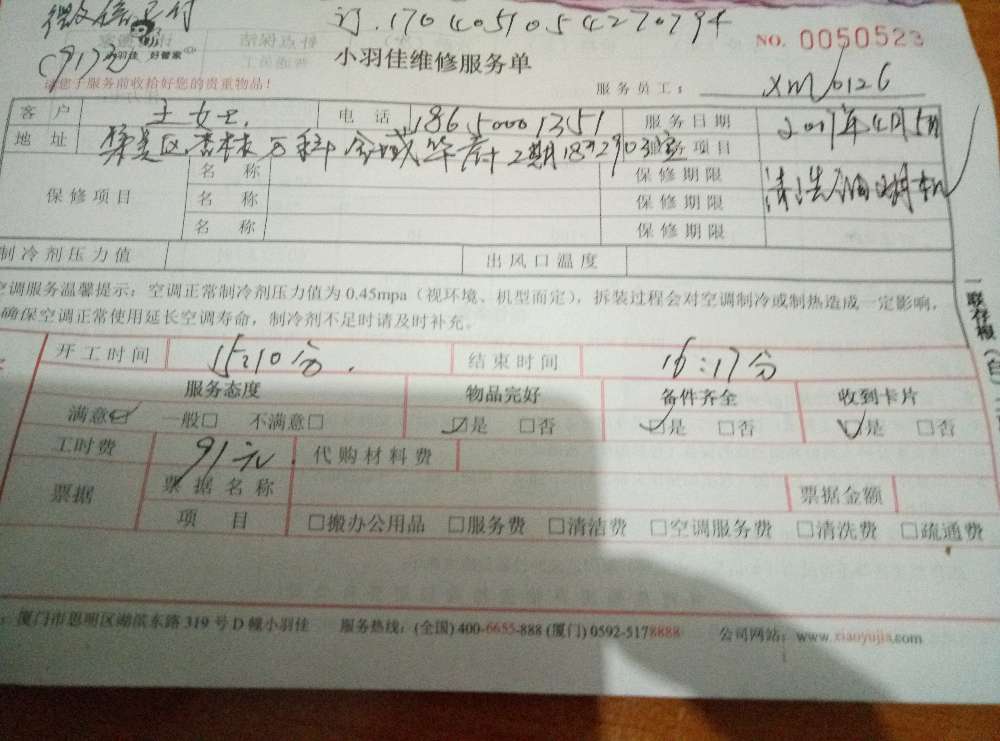 微信已付 订.17040510542270794
(91元) 小羽佳 好管家 NO. 0050523
小羽佳维修服务单
请您于服务前收拾好您的贵重物品! 服务员工: XM0126
客户 王女士. 电话 18650001351 服务日期 2017年4月5日
地址 集美区杏林万科金域华府2期18#2903室 服务项目 清洗油烟机
保修项目 名称 保修期限
名称 保修期限
名称 保修期限
制冷剂压力值 出风口温度
空调服务温馨提示:空调正常制冷剂压力值为0.45mpa(视环境、机型而定),拆装过程会对空调制冷或制热造成一定影响,
确保空调正常使用延长空调寿命,制冷剂不足时请及时补充。
一联存根(白)
开工时间 15:10分. 结束时间 16:17分
服务态度 物品完好 备件齐全 收到卡片
满意☑ 一般□ 不满意□ ☑是 □否 ☑是 □否 ☑是 □否
工时费 91元 代购材料费
票据 票据名称 票据金额
项目 □搬办公用品 □服务费 □清洁费 □空调服务费 □清洗费 □疏通费
厦门市思明区湖滨东路319号D幢小羽佳 服务热线:(全国)400-6655-888 (厦门) 0592-5178888 公司网站:www.xiaoyujia.com